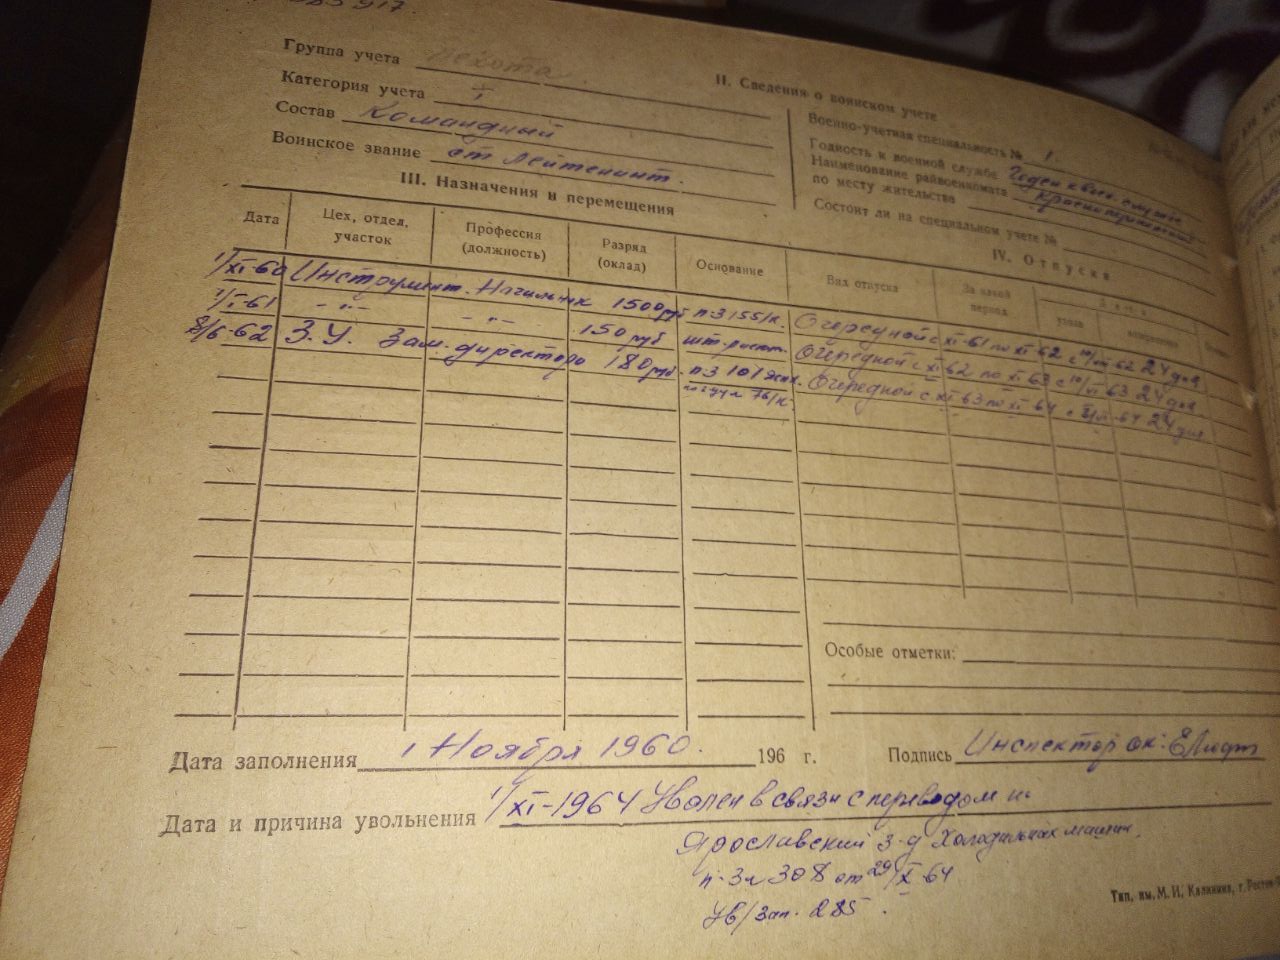 Группа учета пехота
Категория учета I
Состав Командный
Воинское звание ст лейтенант.
II. Сведения о воинском учете
Военно-учетная специальность № 1.
Годность к военной службе Годен к воен. службе
Наименование райвоенкомата
по месту жительства
Состоит ли на специальном учете №
III. Назначения и перемещения
Дата Цех, отдел, участок Профессия (должность) Разряд (оклад) Основание
1/XI-60 Инструмент. Начальник 1500 руб п3155/к.
1/I-61 -"- -"- 150 руб шт. распис.
8/6-62 З.У. Зам. директора 180 руб. п3101
IV. Отпуска
Вид отпуска За какой период
Очередной с XI-61 по XI 62 с 19/VII 62 24 дня
Очередной с XI 62 по XI 63 с 19/VI 63 24 дня
Очередной с XI 63 по XI 64 24 дня
Особые отметки:
Дата заполнения 1 Ноября 1960. 196 г. Подпись Инспектор ок:
Дата и причина увольнения 1/XI-1964 Уволен в связи с переводом
Ярославский з-д Холодильных машин.
п-3л 308 от 29/X-64
Ув/зап. 285.
Тип. им. М. И. Калинина, г.